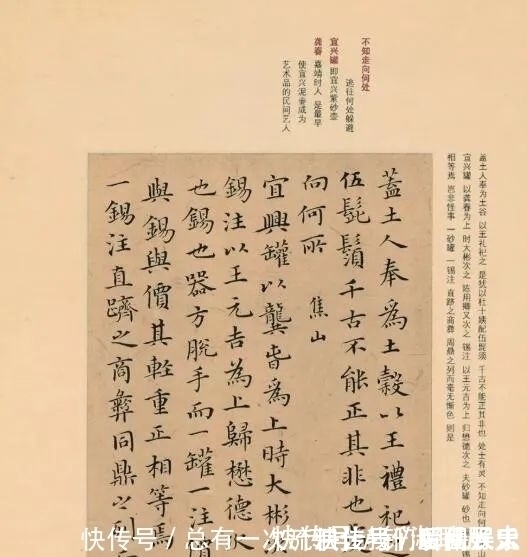 不知走向何处
逃往何处躲避
宜兴罐 即宜兴紫砂壶
龚春 嘉靖时人 是最早
使宜兴泥壶成为
艺术品的民间艺人
盖土人奉为土谷 以王礼祀之 是犹以杜十姨配伍髭须 千古不能正其非也 处士有灵 不知走向何
宜兴罐 以龚春为上 时大彬次之 陈用卿又次之 锡注 以王元吉为上 归懋德次之 夫砂罐 砂也 锡
相等焉 岂非怪事 一砂罐 一锡注 直跻之商彝 周鼎之列而毫无惭色 则是
蓋土人奉為土穀以王禮祀
伍髭鬚千古不能正其非也
向何所 焦山
宜興罐以龔旾為上時大彬
錫注以王元吉為上歸懋德次
也錫也器方脫手而一罐一注
與錫與價其輕重正相等焉
一錫注直躋之商彝周鼎之列
快传号 / 总有一次